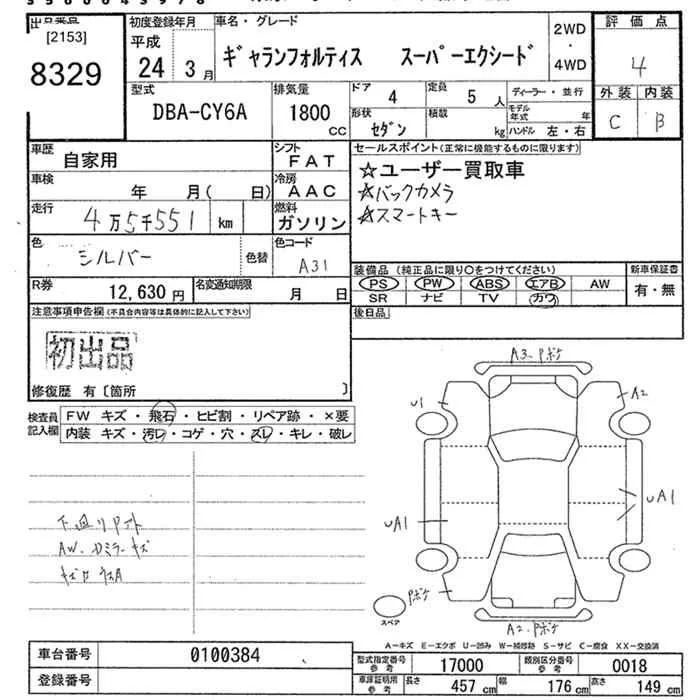 出品番号
[2153]
8329
初度登録年月
平成
24 3月
車名・グレード
ギャランフォルティス スーパーエクシード
2WD
・
4WD
評価点
4
外装 内装
C B
型式
DBA-CY6A
排気量
1800
CC
ドア 4
定員 5 人
形状 セダン
積載 kg
ディーラー・並行
モデル年式 年
ハンドル 左・右
車歴 自家用
シフト
FAT
車検 年 月( 日)
冷房
AAC
走行 4万5千551 km
燃料
ガソリン
色 シルバー
色替
色コード
A31
R券 12,630 円
名変通知期限 月 日
セールスポイント(正常に機能するものに限ります)
☆ユーザー買取車
☆バックカメラ
☆スマートキー
装備品 (純正品に限り○をつけてください)
PS PW ABS エアB AW
SR ナビ TV カワ
新車保証書
有・無
後日品
注意事項申告欄(不具合内容等は具体的に記入して下さい)
初出品
修復歴 有〔箇所 〕
検査員記入欄
FW キズ・飛石・ヒビ割・リペア跡・×要
内装 キズ・汚レ・コゲ・穴・スレ・キレ・破レ
AW.Dミラーキズ
A3.Pボケ
U1
A2
UA1
UA1
Pボケ
スペア
A2.Pボケ
A－キズ E－エクボ U－凹み W－補修跡 S－サビ C－腐食 XX－交換済
車台番号 0100384
登録番号
型式指定番号 参考 17000
類別区分番号 参考 0018
車庫証明用 参考
長さ 457 cm
幅 176 cm
高さ 149 cm